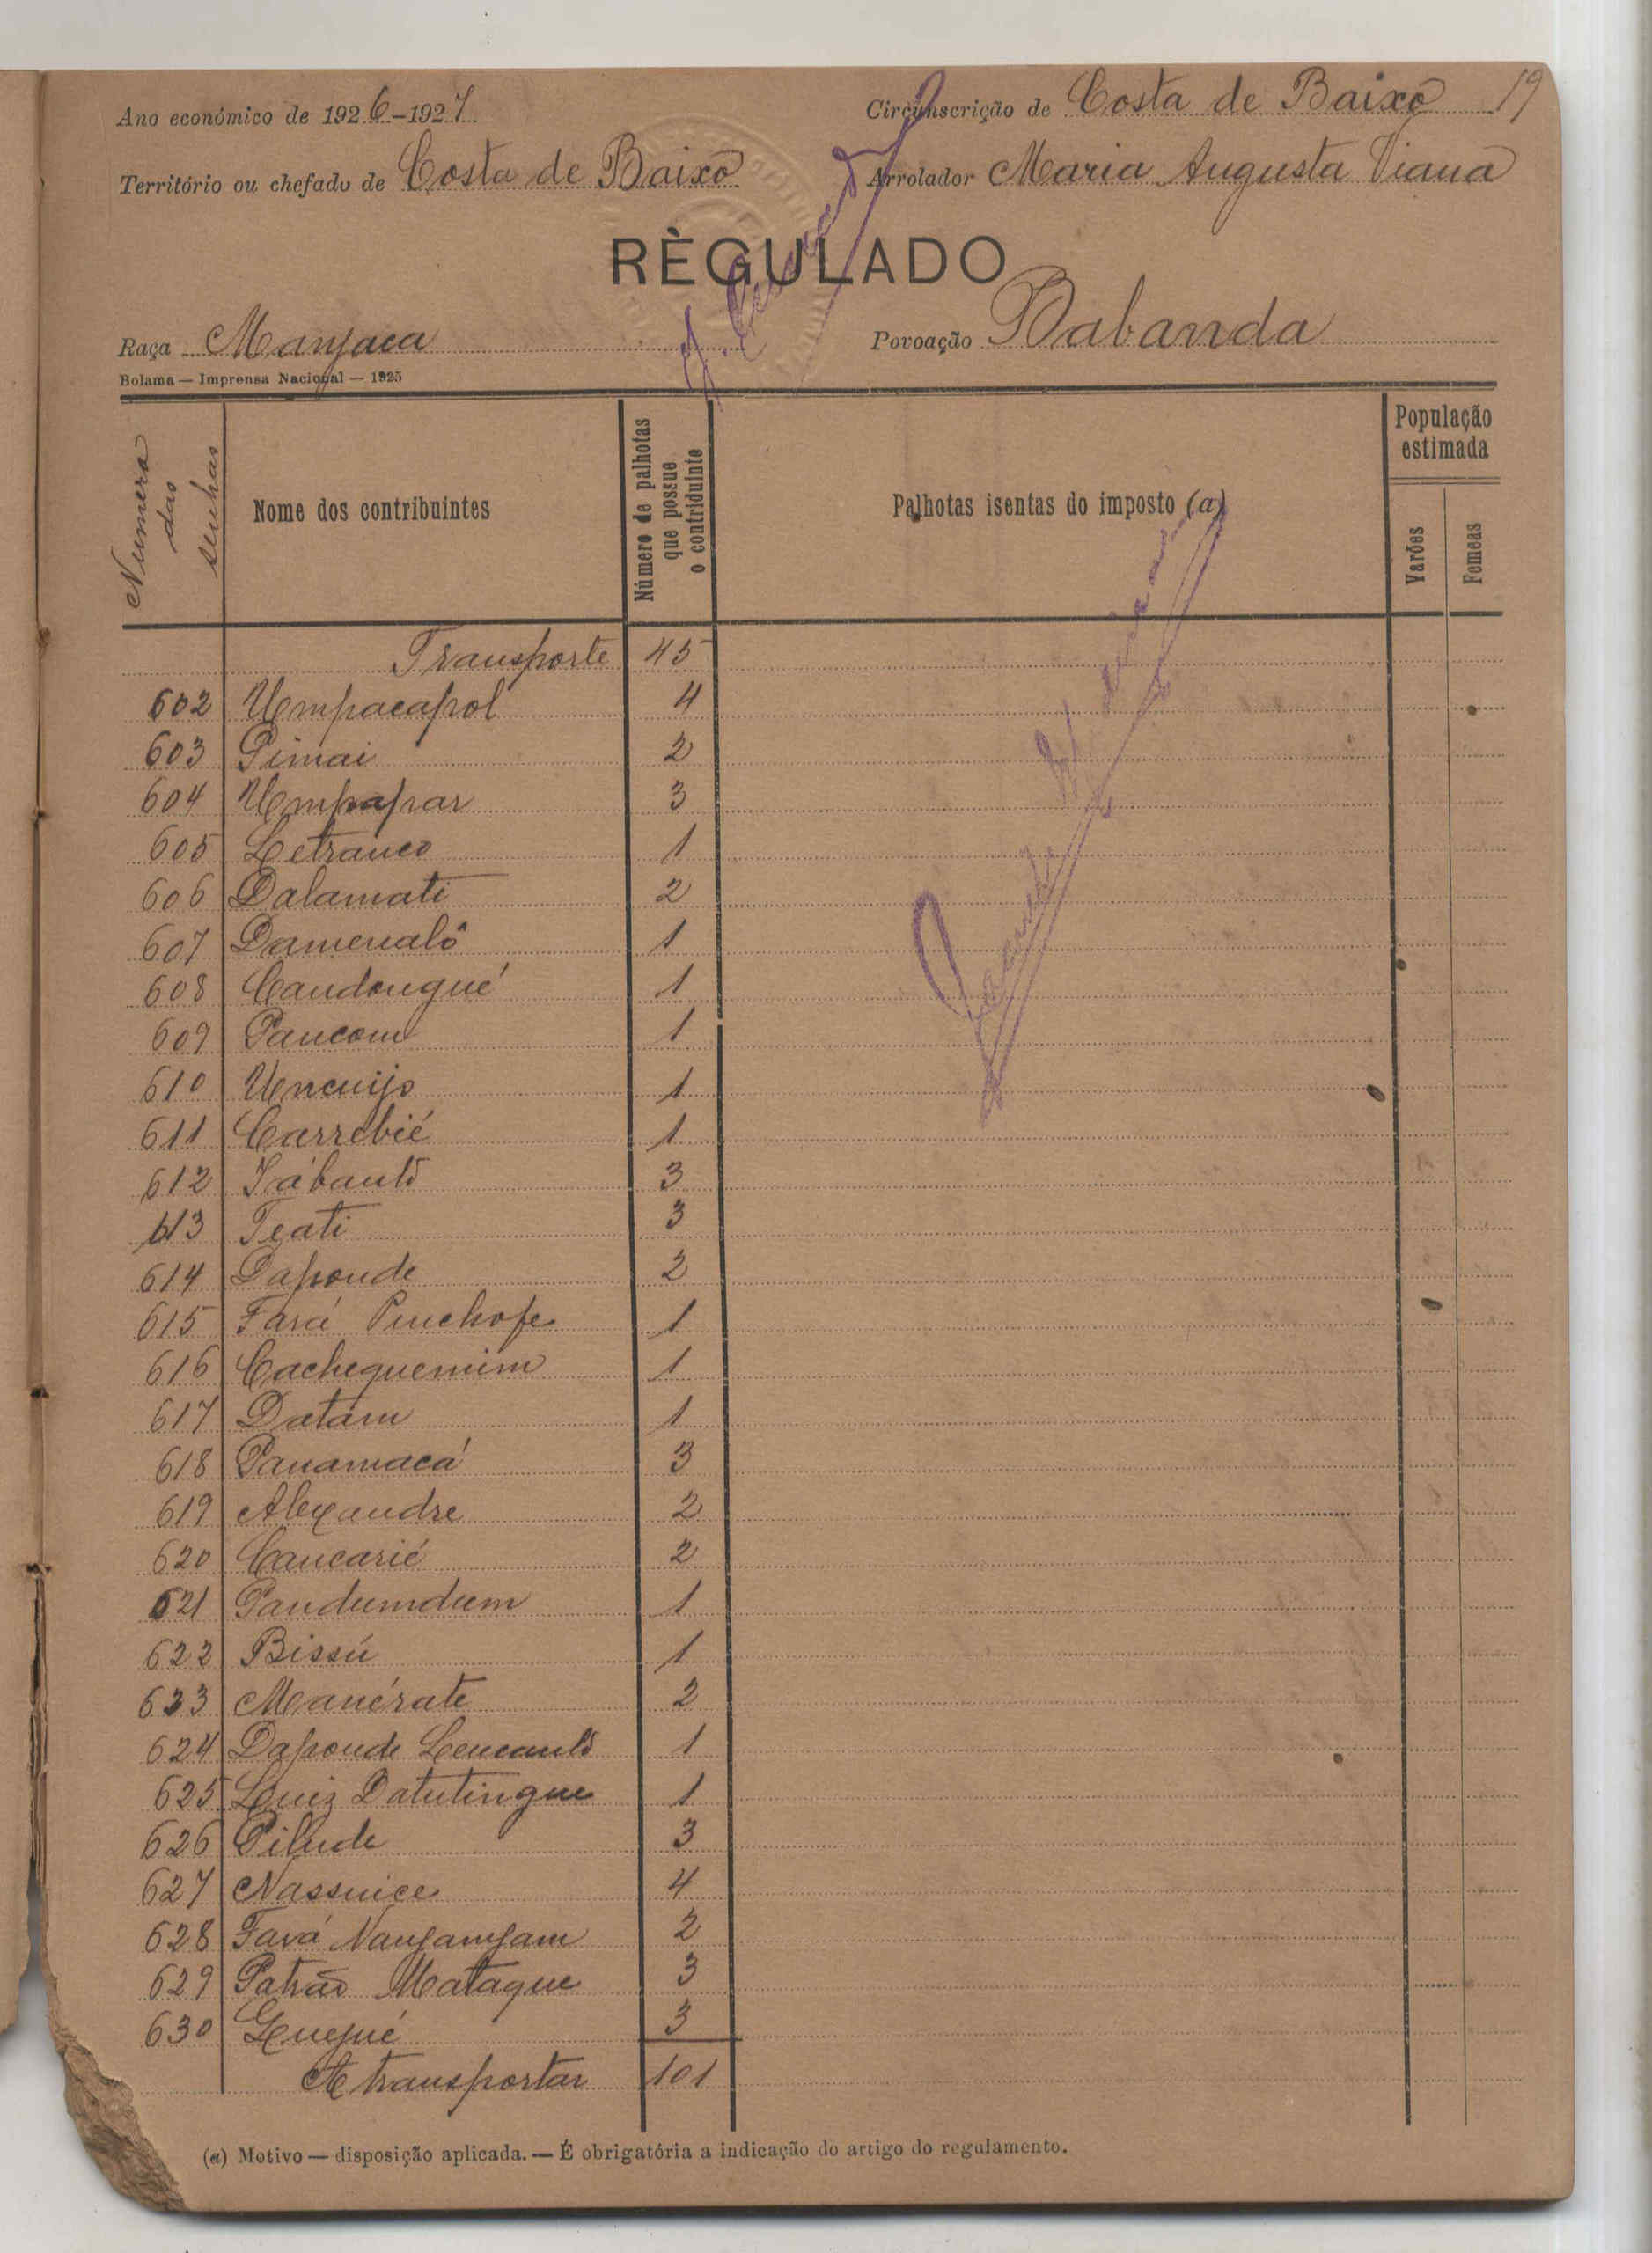 Ano económico de 1926-1927 Circunscrição de Costa de Baixo 19
Território ou chefado de Costa de Baixo Arrolador Maria Augusta Viana
RÈGULADO
Raça Manjaca Povoação Babanda
Bolama — Imprensa Nacional — 1925
Numero das senhas Nome dos contribuintes Número de palhotas que possue o contriduinte Palhotas isentas do imposto (a) População estimada Varões Femeas
Transporte 45
602 Umpacapol 4
603 Pimai 2
604 Umpapar 3
605 Letranco 1
606 Dalamati 2
607 Damenalô 1
608 Candongué 1
609 Pancom 1
610 Uncuijo 1
611 Carrebié 1
612 Iábanlõ 3
613 Teati 3
614 Daponde 2
615 Fará Pinchofe 1
616 Cachequemim 1
617 Datam 1
618 Panamacá 3
619 Alexandre 2
620 Cancarié 2
621 Pandumdum 1
622 Bissú 1
623 Manérate 2
624 Daponde 1
625 Luiz Datutingue 1
626 Pilude 3
627 Nassuice 4
628 Fará Nanjamjam 2
629 Patrão Mataque 3
630 3
A transportar 101
(a) Motivo — disposição aplicada. — É obrigatória a indicação do artigo do regulamento.